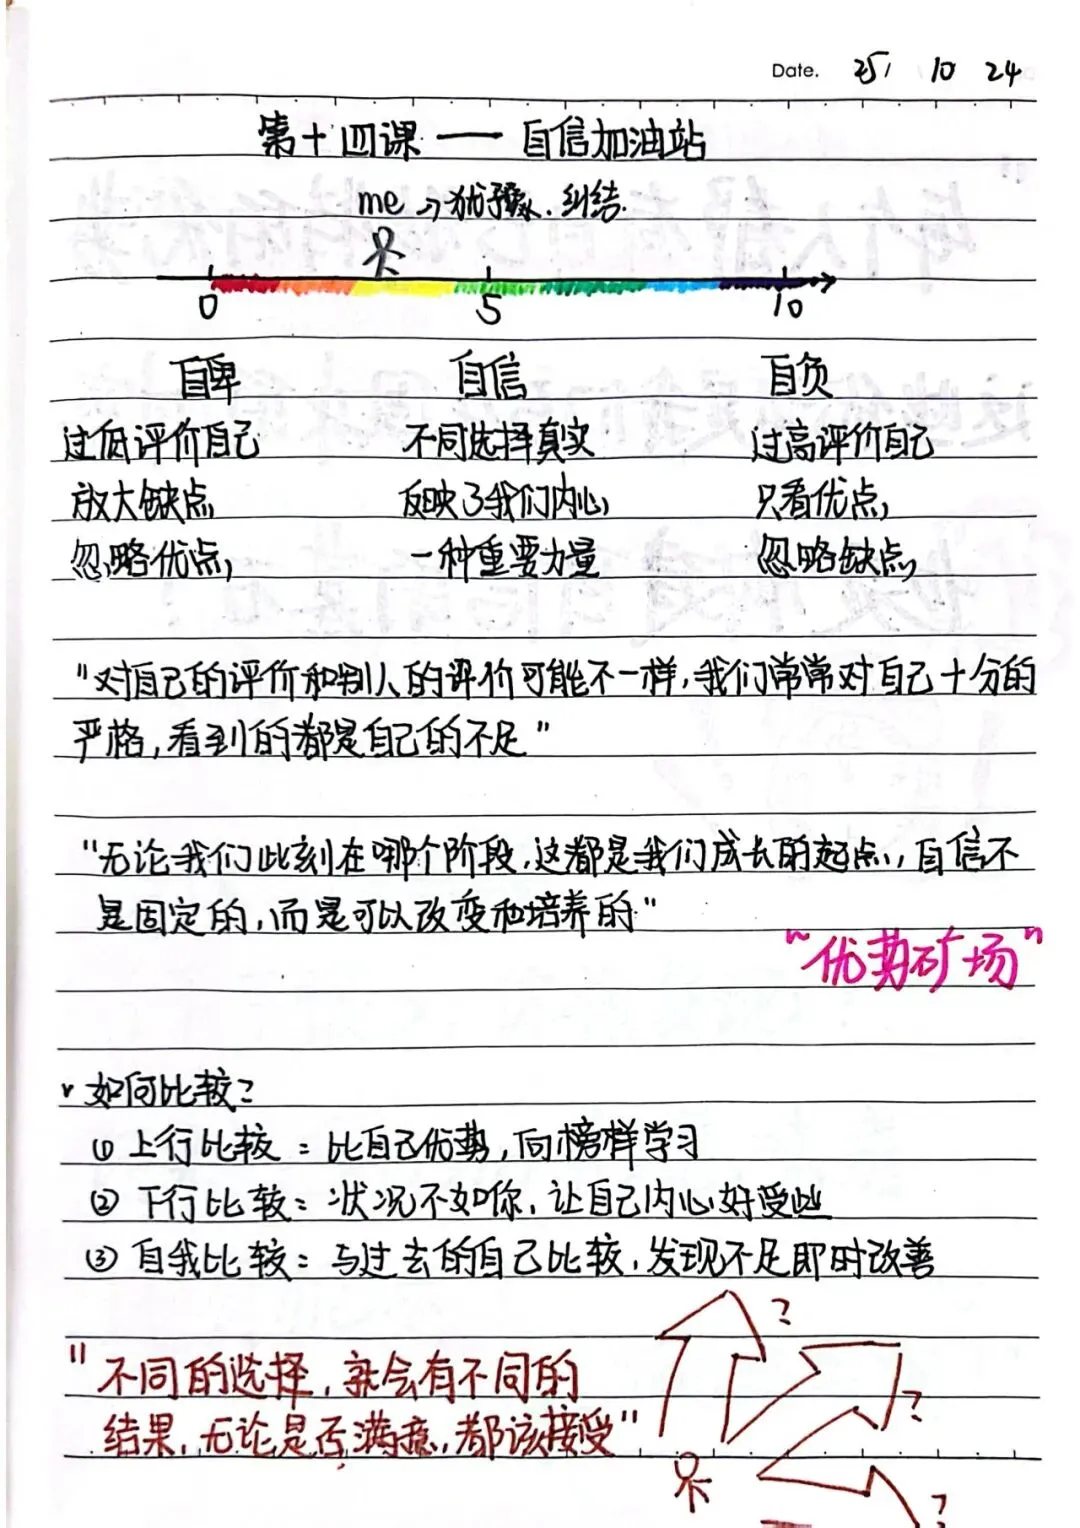 Date. 25/ 10 24
第十四课 —— 自信加油站
me → 犹豫、纠结.
0 5 10
自卑 自信 自负
过低评价自己 不同选择真实 过高评价自己
放大缺点, 反映了我们内心, 只看优点,
忽略优点, 一种重要力量 忽略缺点,
"对自己的评价和别人的评价可能不一样,我们常常对自己十分的
严格,看到的都是自己的不足"
"无论我们此刻在哪个阶段,这都是我们成长的起点,自信不
是固定的,而是可以改变和培养的"
"优势矿场"
如何比较?
① 上行比较:比自己优势,向榜样学习
② 下行比较:状况不如你,让自己内心好受些
③ 自我比较:与过去的自己比较,发现不足即时改善
?
"不同的选择,就会有不同的
?
结果,无论是否满意,都该接受"
?